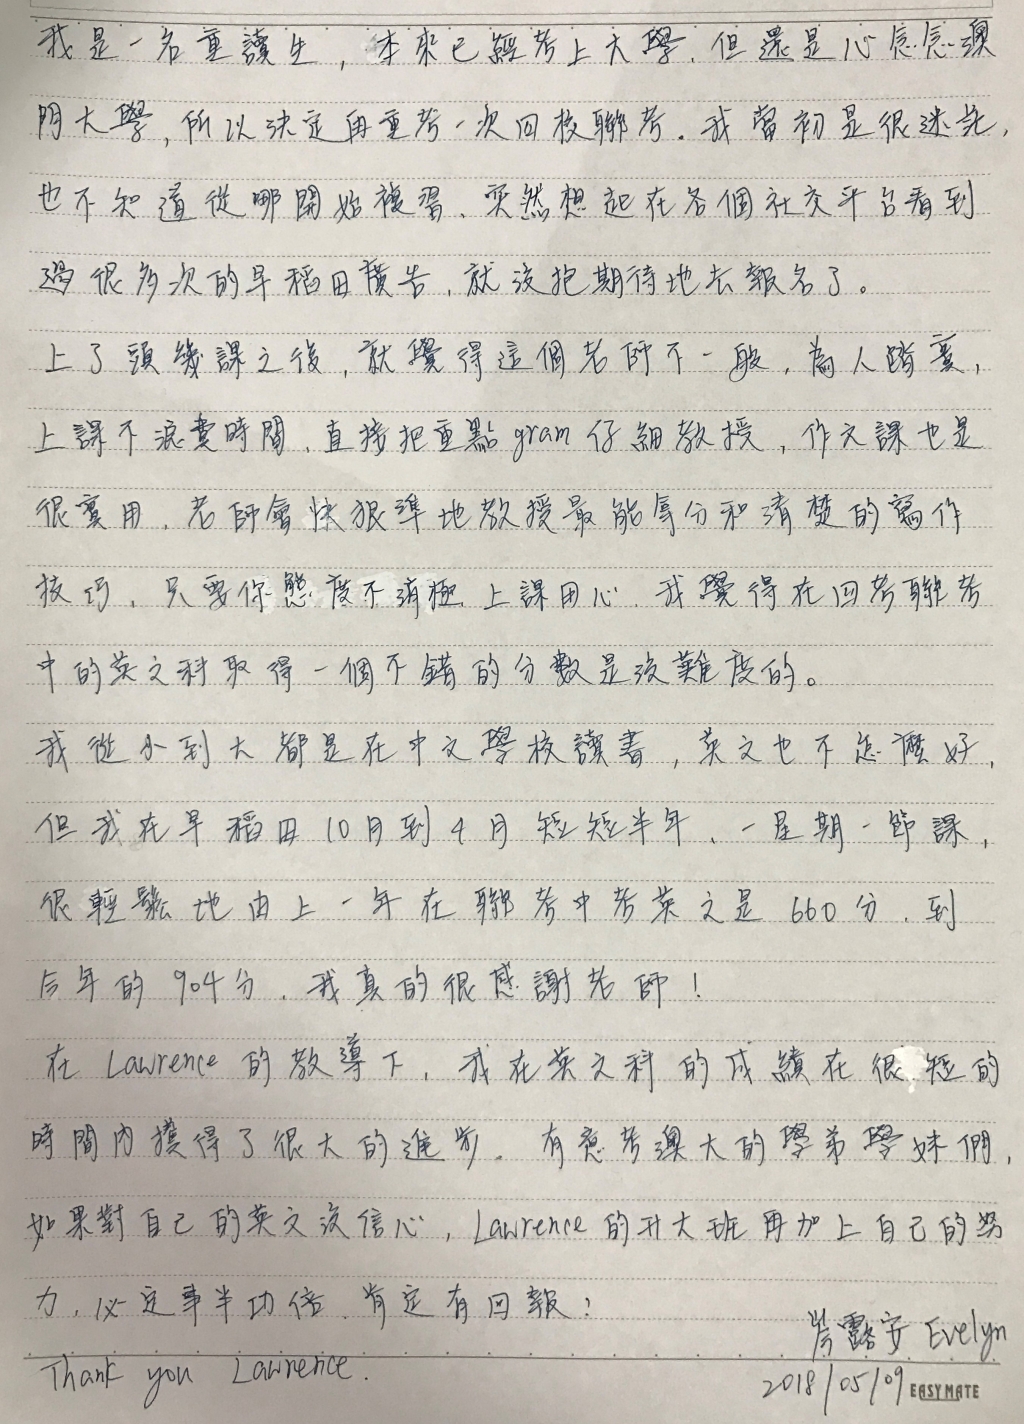 我是一名重讀生，本來已經考上大學，但還是心念念澳
門大學，所以決定再重考一次四校聯考。我當初是很迷茫，
也不知道從哪開始複習，突然想起在各個社交平台看到
過很多次的早稻田廣告，就沒抱期待地去報名了。
上了頭幾課之後，就覺得這個老師不一般，為人踏實，
上課不浪費時間，直接把重點gram仔細教授，作文課也是
很實用，老師會快狠準地教授最能奪分和清楚的寫作
技巧，只要你態度不消極，上課用心，我覺得在四考聯考
中的英文科取得一個不錯的分數是沒難度的。
我從小到大都是在中文學校讀書，英文也不怎麼好，
但我在早稻田10月到4月短短半年，一星期一節課，
很輕鬆地由上一年在聯考中考英文是660分，到
今年的904分，我真的很感謝老師！
在Lawrence的教導下，我在英文科的成績在很短的
時間內獲得了很大的進步。有意考澳大的學弟學妹們，
如果對自己的英文沒信心，Lawrence的升大班再加上自己的努
力，必定事半功倍，肯定有回報！
露安 Evelyn
Thank you Lawrence.
2018/05/09 EASYMATE